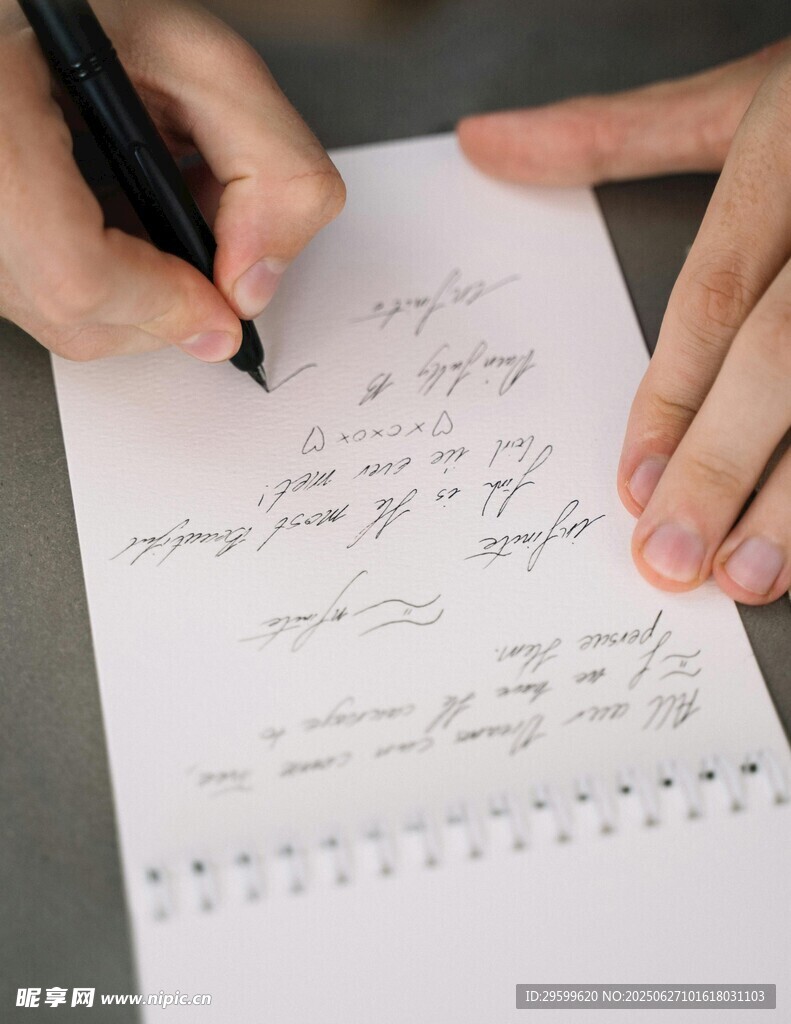 All our Dream can come True,
If we have the courage to
persue them.
Infinite
infinite
Link is the most Beautiful
ever met!
♡xoxo♡
Painfully B
Infinite
昵享网 www.nipic.cn
ID:29599620 NO:20250627101618031103